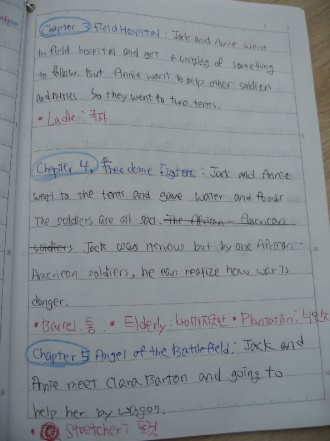 Chapter 3 Field Hospital : Jack and Annie went
to field hospital and get a writing of something
to follow. But Annie want to help other soldier
and nurses. So they went to two tents.
• Ladle : 국자
Chapter 4. Freedome Figters : Jack and Annie
went to the tents and gave water and foods
The soldiers are all sad. The African - American
soldiers Jack was nervous but by one African-
American soldiers, he can realize how war is
danger.
• Barrel : 통 • Elderly : 나이가지긋한 • Plantation :
Chapter 5 Angel of the Battlefield : Jack and
Annie meet Clara Barton and going to
help her by wagon.
• Stretcher : 들것